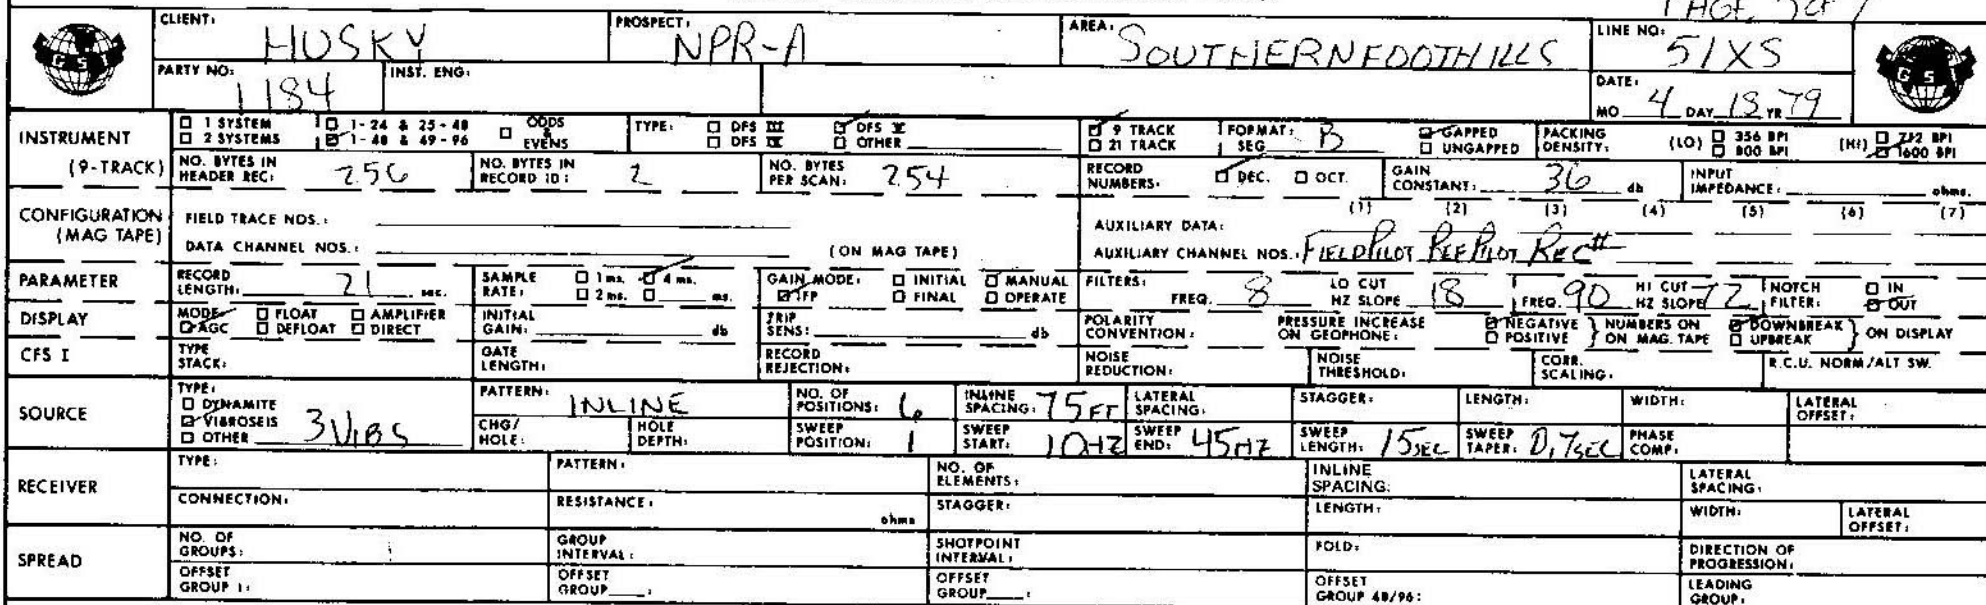 PAGE 7 of 7
CLIENT: HUSKY PROSPECT: NPR-A AREA: SOUTHERN FOOTHILLS LINE NO: 51XS
GSI GSI
PARTY NO: 1184 INST. ENG: DATE: MO 4 DAY 18 YR 79
INSTRUMENT (9-TRACK)
1 SYSTEM 1-24 & 25-48 ODDS & EVENS TYPE: DFS III DFS V 9 TRACK FORMAT: SEG B GAPPED PACKING DENSITY: (LO) 356 BPI (HI) 712 BPI
2 SYSTEMS 1-48 & 49-96 DFS IV OTHER 21 TRACK UNGAPPED 800 BPI 1600 BPI
NO. BYTES IN HEADER REC: 256 NO. BYTES IN RECORD ID: 2 NO. BYTES PER SCAN: 254 RECORD NUMBERS: DEC. OCT. GAIN CONSTANT: 36 db INPUT IMPEDANCE: ohms.
CONFIGURATION (MAG TAPE)
FIELD TRACE NOS.: AUXILIARY DATA: (1) (2) (3) (4) (5) (6) (7)
DATA CHANNEL NOS.: (ON MAG TAPE) AUXILIARY CHANNEL NOS.: FIELD PILOT REF PILOT REC #
PARAMETER RECORD LENGTH: 21 sec. SAMPLE RATE: 1 ms. 4 ms. 2 ms. ms. GAIN MODE: INITIAL MANUAL IFP FINAL OPERATE FILTERS: FREQ. 8 LO CUT HZ SLOPE 18 FREQ. 90 HI CUT HZ SLOPE 72 NOTCH FILTER: IN OUT
DISPLAY MODE FLOAT AMPLIFIER AGC DEFLOAT DIRECT INITIAL GAIN: db TRIP SENS: db POLARITY CONVENTION: PRESSURE INCREASE ON GEOPHONE: NEGATIVE POSITIVE NUMBERS ON ON MAG. TAPE DOWNBREAK UPBREAK ON DISPLAY
CFS I TYPE STACK: GATE LENGTH: RECORD REJECTION: NOISE REDUCTION: NOISE THRESHOLD: CORR. SCALING: R.C.U. NORM/ALT SW.
SOURCE TYPE: DYNAMITE VIBROSEIS OTHER 3 VIBS
PATTERN: INLINE NO. OF POSITIONS: 6 INLINE SPACING: 75 FT LATERAL SPACING: STAGGER: LENGTH: WIDTH: LATERAL OFFSET:
CHG/HOLE: HOLE DEPTH: SWEEP POSITION: 1 SWEEP START: 10HZ SWEEP END: 45HZ SWEEP LENGTH: 15SEC SWEEP TAPER: 0.7SEC PHASE COMP:
RECEIVER TYPE: PATTERN: NO. OF ELEMENTS: INLINE SPACING: LATERAL SPACING:
CONNECTION: RESISTANCE: ohms STAGGER: LENGTH: WIDTH: LATERAL OFFSET:
SPREAD NO. OF GROUPS: GROUP INTERVAL: SHOTPOINT INTERVAL: FOLD: DIRECTION OF PROGRESSION:
OFFSET GROUP 1: OFFSET GROUP : OFFSET GROUP : OFFSET GROUP 48/96: LEADING GROUP: